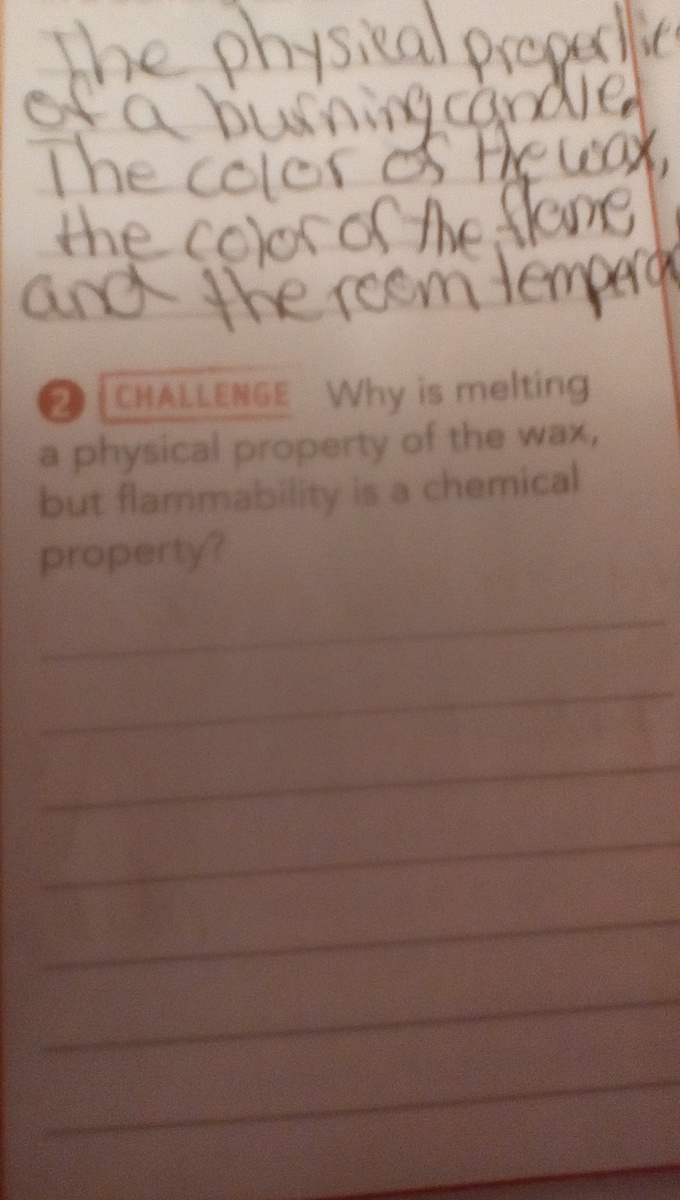 The physical
of a burning candle.
The color of the wax,
the color of the flame
and the room
2 CHALLENGE Why is melting
a physical property of the wax,
but flammability is a chemical
property?